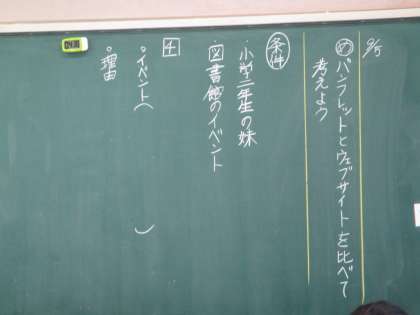 9/5
め パンフレットとウェブサイトを比べて
考えよう
条件
・小学二年生の妹
・図書館のイベント
4
・イベント（　　　）
・理由